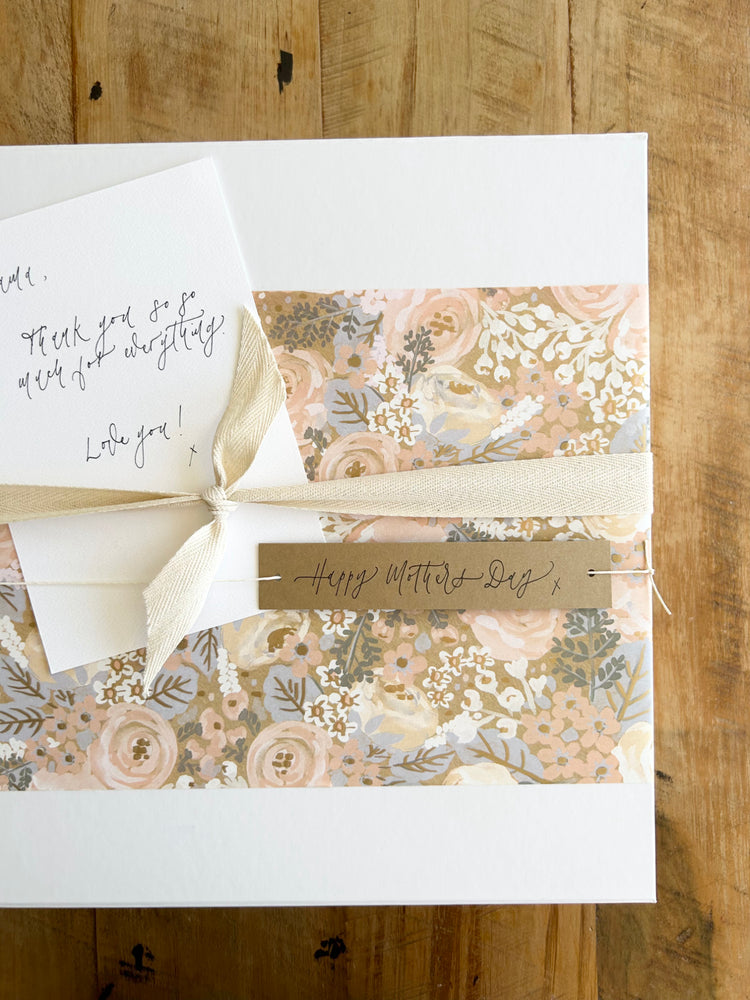 Thank you so so
much for everything.
Love you!
x
Happy Mothers Day x